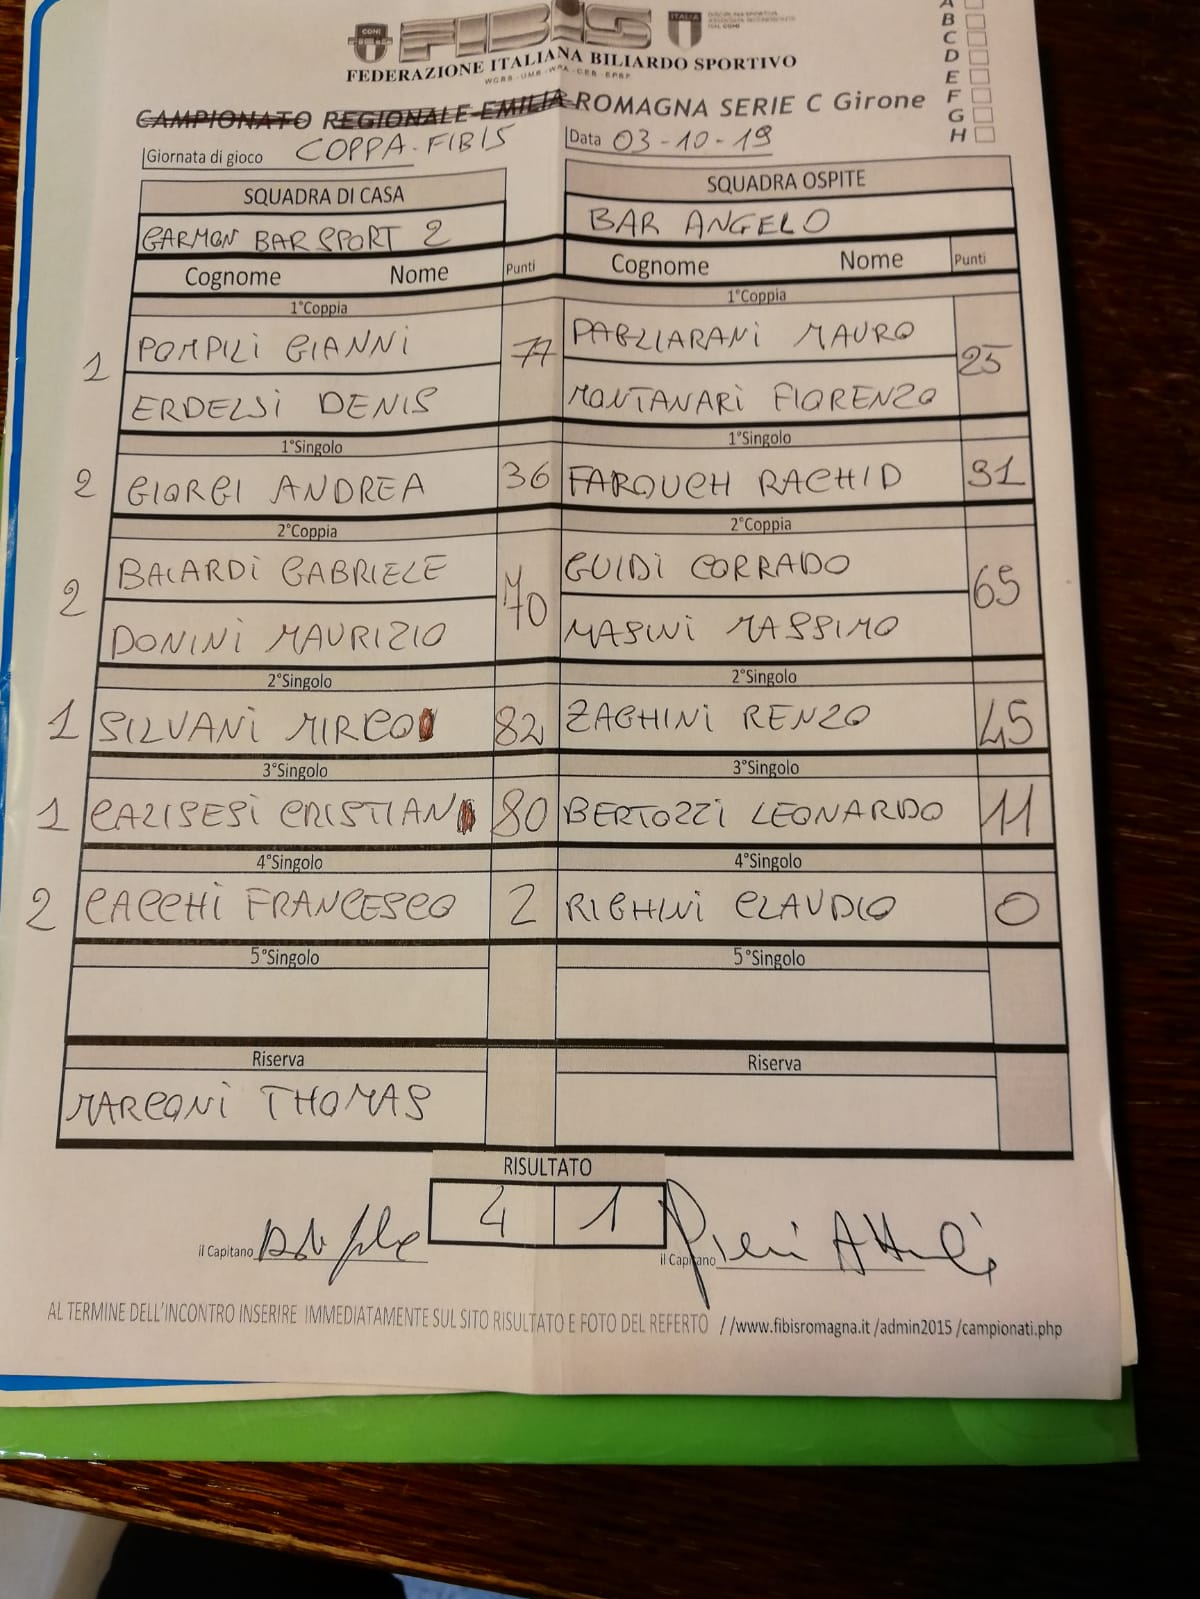 CONI FIBiS ITALIA
FEDERAZIONE ITALIANA BILIARDO SPORTIVO
CAMPIONATO REGIONALE EMILIA ROMAGNA SERIE C Girone
A
B
C
D
E
F
G
H
Giornata di gioco COPPA-FIBIS
Data 03-10-19
SQUADRA DI CASA
SQUADRA OSPITE
GARMON BAR SPORT 2
BAR ANGELO
Cognome Nome Punti
Cognome Nome Punti
1°Coppia
1°Coppia
1 POMPILI GIANNI 77
PAGLIARANI MAURO 25
ERDELSI DENIS
MONTANARI FIORENZO
1°Singolo
1°Singolo
2 GIORGI ANDREA 36
FAROUCH RACHID 91
2°Coppia
2°Coppia
2 BAIARDI GABRIELE 70
GUIDI CORRADO 65
DONINI MAURIZIO
MASINI MASSIMO
2°Singolo
2°Singolo
1 SILVANI MIRCO 82
ZAGHINI RENZO 45
3°Singolo
3°Singolo
1 CALISESI CRISTIAN 80
BERTOZZI LEONARDO 11
4°Singolo
4°Singolo
2 CACCHI FRANCESCO 2
RIGHINI CLAUDIO 0
5°Singolo
5°Singolo
Riserva
Riserva
MARCONI THOMAS
RISULTATO
4 1
il Capitano
il Capitano
AL TERMINE DELL'INCONTRO INSERIRE IMMEDIATAMENTE SUL SITO RISULTATO E FOTO DEL REFERTO //www.fibisromagna.it /admin2015 /campionati.php